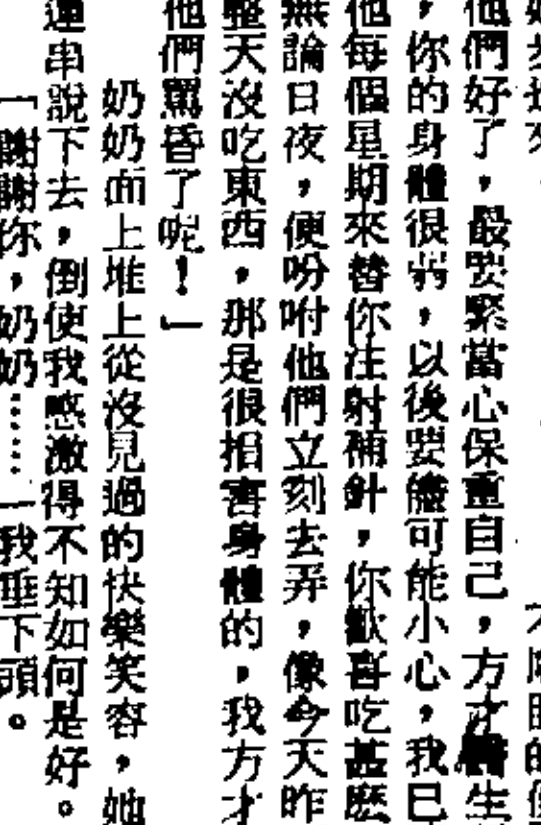 她步進來，
他們好了，最要緊當心保重自己，方才醫生
，你的身體很弱，以後要儘可能小心，我已
他每個星期來替你注射補針，你歡喜吃甚麼
無論日夜，便吩咐他們立刻去弄，像今天昨
整天沒吃東西，那是很損害身體的，我方才
他們罵昏了呢！」
奶奶面上堆上從沒見過的快樂笑容，她
連串說下去，倒使我感激得不知如何是好。
「謝謝你，奶奶……」我垂下頭。